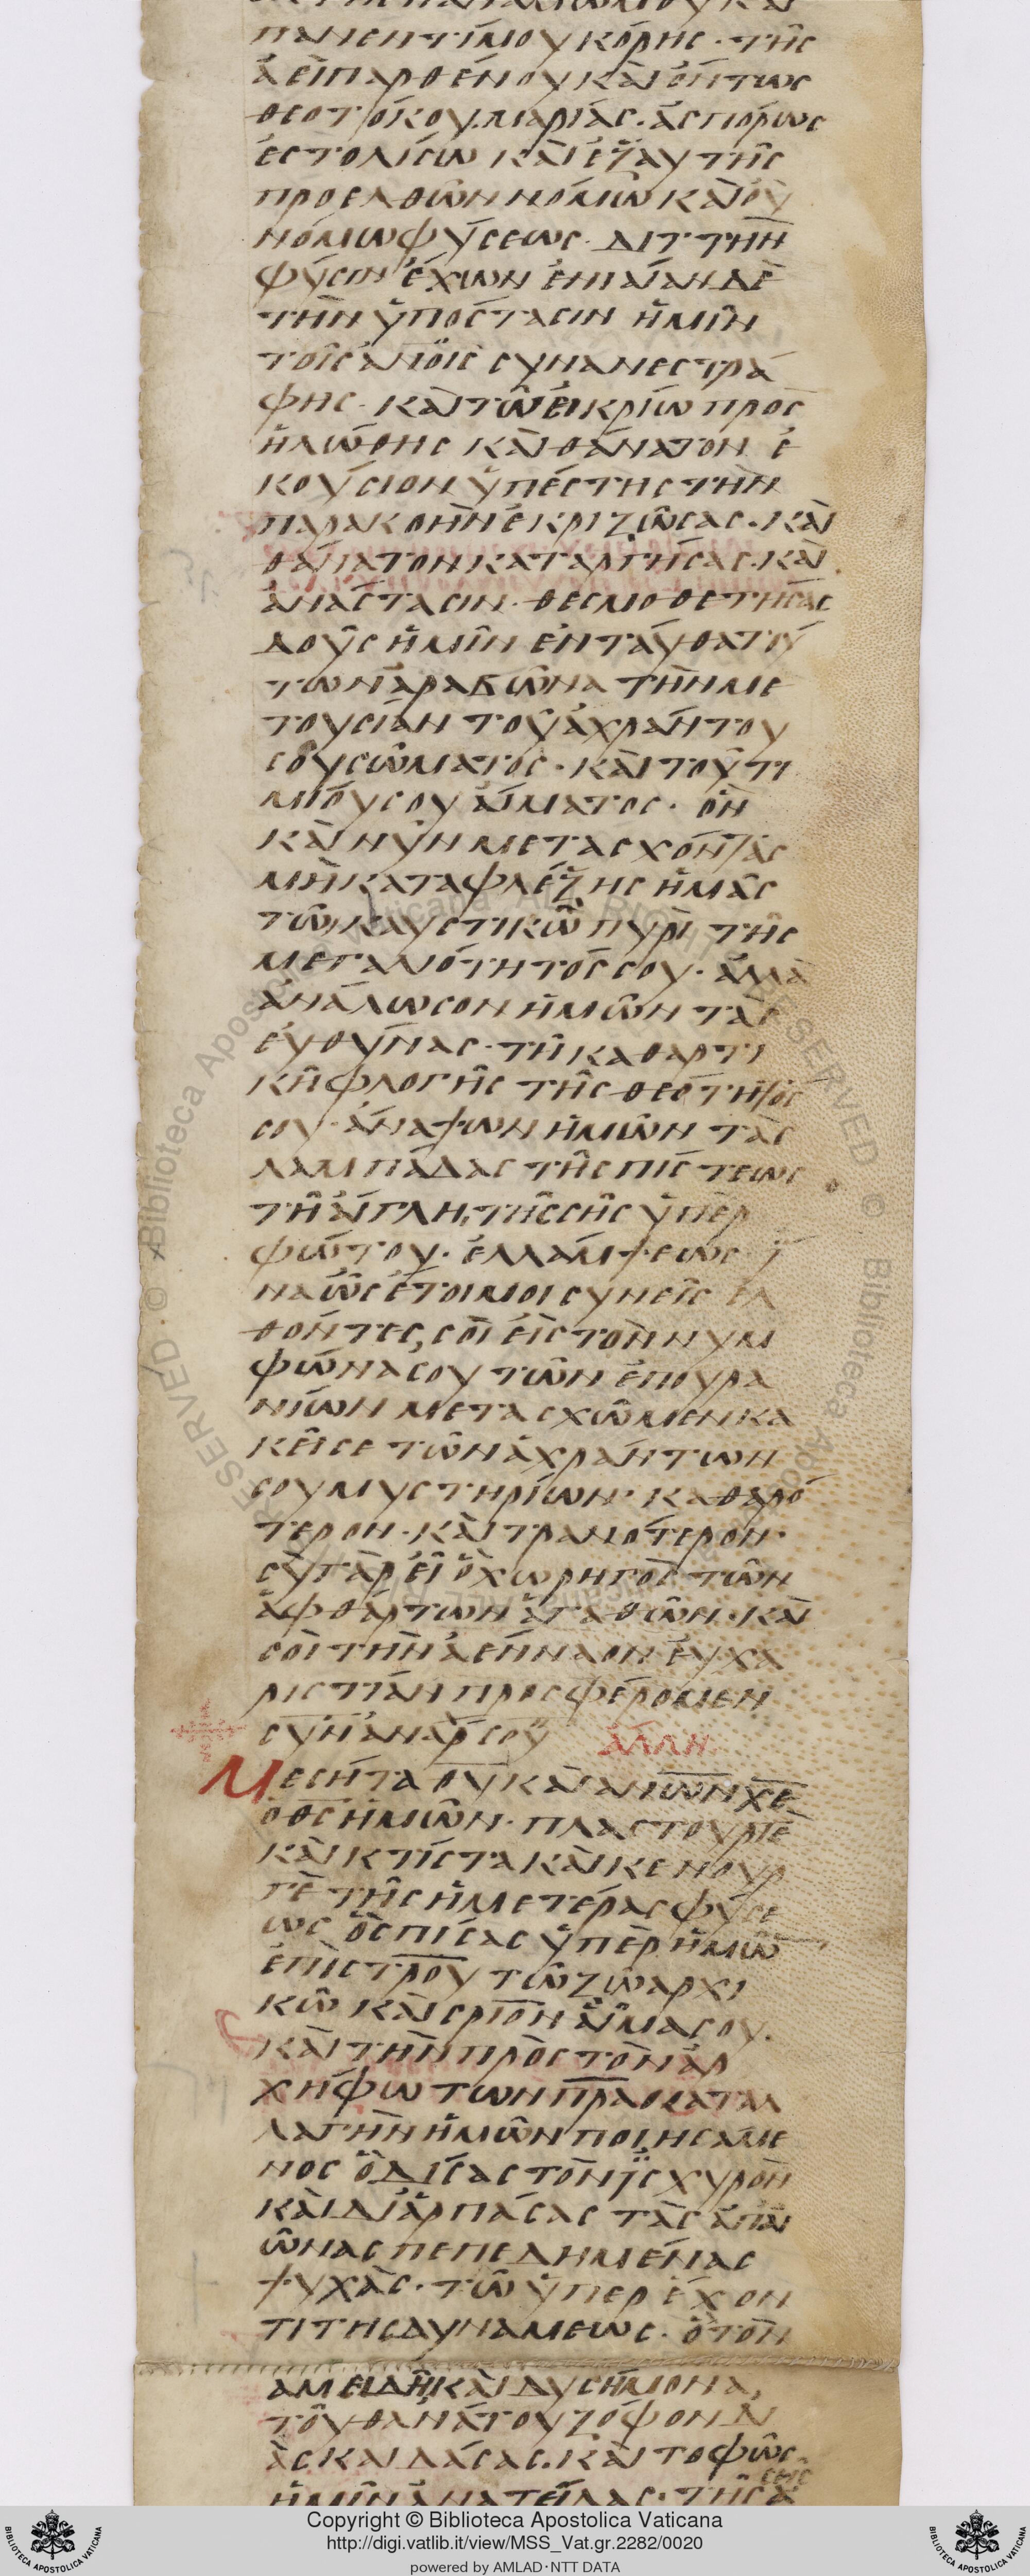 παντεντίμου κόρης · τῆς
ἀειπαρθένου καὶ ὄντως
θεοτόκου μαρίας · ἀσπόρως
ἐστολίσω καὶ ἐξ αὐτῆς
προελθὼν νόμω καὶ οὐ
νόμω φύσεως · διτ την
φύσιν ἔχων ἐνιαίαν δὲ
τὴν ὑπόστασιν ἡμῖν
τοῖς ἀνοις συνανεστρά
φης · καὶ τῶ ἰκρίω προσ
ηλώθης καὶ θάνατον ἑ
κούσιον ὑπέστης τὴν
παρακοὴν ἐκριζώσας · καὶ
θάνατον καταργήσας · καὶ
ἀνάστασιν · θεσμοθετήσας
δοὺς ἡμῖν ἐνταῦθα τού
των ἀραβῶνα τὴν με
τουσίαν τοῦ ἀχράντου
σοῦ σώματος · καὶ τοῦ τι
μίου σου αἵματος · ὧν
καὶ νῦν μετασχόντας
μὴ καταφλέξης ἡμᾶς
τῶ καυστικῶ πυρὶ τῆς
μεγαλότητός σου · ἀλλὰ
ἀνάλωσον ἡμῶν τὰς
εὐθύνας · τῆ καθαρτι
κῆ φλογὶ τῆς θεότητος
σου · ἀνάψων ἡμῶν τὰς
λαμπάδας τῆς πίστεως
τῆ αἴγλη τῆς σῆς ὑπερ
φώτου · ἐλλάμψεως ἵ
να ὡς ἕτοιμοι συνεισελ
θόντες σοὶ εἰς τὸν νυμ
φῶνα σου τῶν ἐπουρα
νίων μετασχῶμεν κα
κεῖσε τῶν ἀχράντων
σου μυστηρίων · καθαρό
τερον · καὶ τρανότερον ·
σὺ γὰρ εἶ ὁ χωρηγὸς τῶν
ἀφθάρτων ἀγαθῶν · καὶ
σοὶ τὴν ἀένναον εὐχα
ριστίαν προσφέρομεν
σὺν ἀνάρ σου ἄλλη
Μεσῆτα θυ καὶ ανων χε
ὁ θς ἡμῶν · πλαστουργὲ
καὶ κτίστα καὶ κενουρ
γὲ τῆς ἡμετέρας φύσε
ως ὁ σπίσας ὑπὲρ ἡμῶ
ἐπὶ στρου τῶ ζωαρχι
κῶ καὶ σριον αἷμα σου ·
καὶ τὴν πρὸς τὸν ἀρ
χήφωτων πρα καταλ
λαγὴν ἡμῶν ποιησάμε
νος ὁ δίσας τὸν ἰσχυρὸν
καὶ διαρπάσας τὰς ἀπ αἰ
ῶνας πεπεδημένας
ψυχὰς · τῶ ὑπερέχον
τι της δυνάμεως · ὁ τὸν
ἀμειδῆ καὶ δυσήμονα
τοῦ θανάτου ζόφον δι
ασκαιδάσας · καὶ το φῶς
ἡμῖν ἀνατείλας · τῆς ἀ
Copyright © Biblioteca Apostolica Vaticana
http://digi.vatlib.it/view/MSS_Vat.gr.2282/0020
powered by AMLAD·NTT DATA